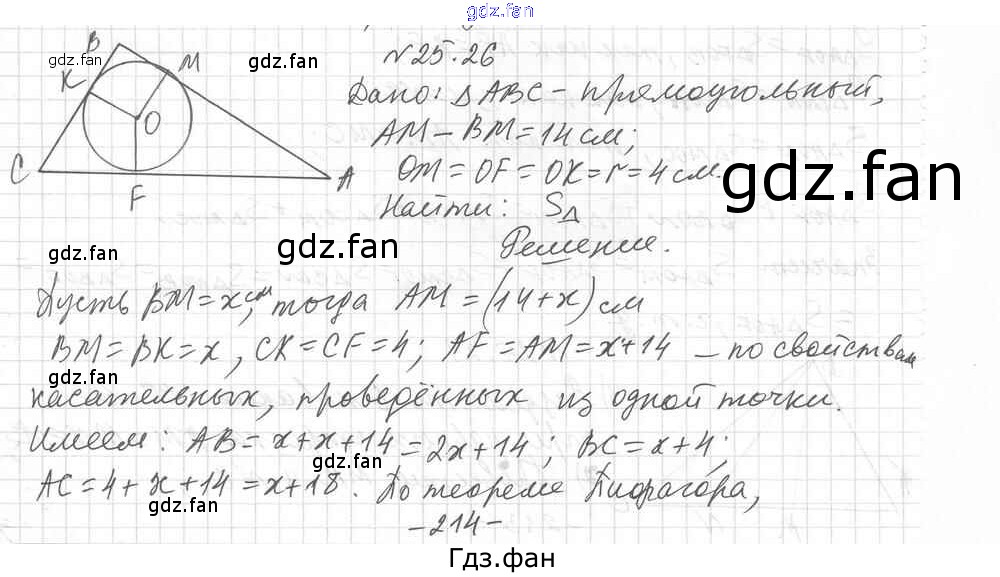 gdz.fan
№25.26
B
gdz.fan
K
M
gdz.fan
O
C
A
F
Дано: ΔABC - прямоугольный,
AM - BM = 14 см;
OM = OF = OK = r = 4 см.
gdz.fan
Найти: SΔ
gdz.fan
gdz.fan
Решение.
Пусть BM = x см, тогда AM = (14+x) см
gdz.fan
BM = BK = x, CK = CF = 4; AF = AM = x+14 – по свойствам
gdz.fan
касательных, проведённых из одной точки.
gdz.fan
Имеем: AB = x+x+14 = 2x+14; BC = x+4;
gdz.fan
AC = 4+x+14 = x+18. По теореме Пифагора,
gdz.fan
gdz.fan
-214-
Гдз.фан